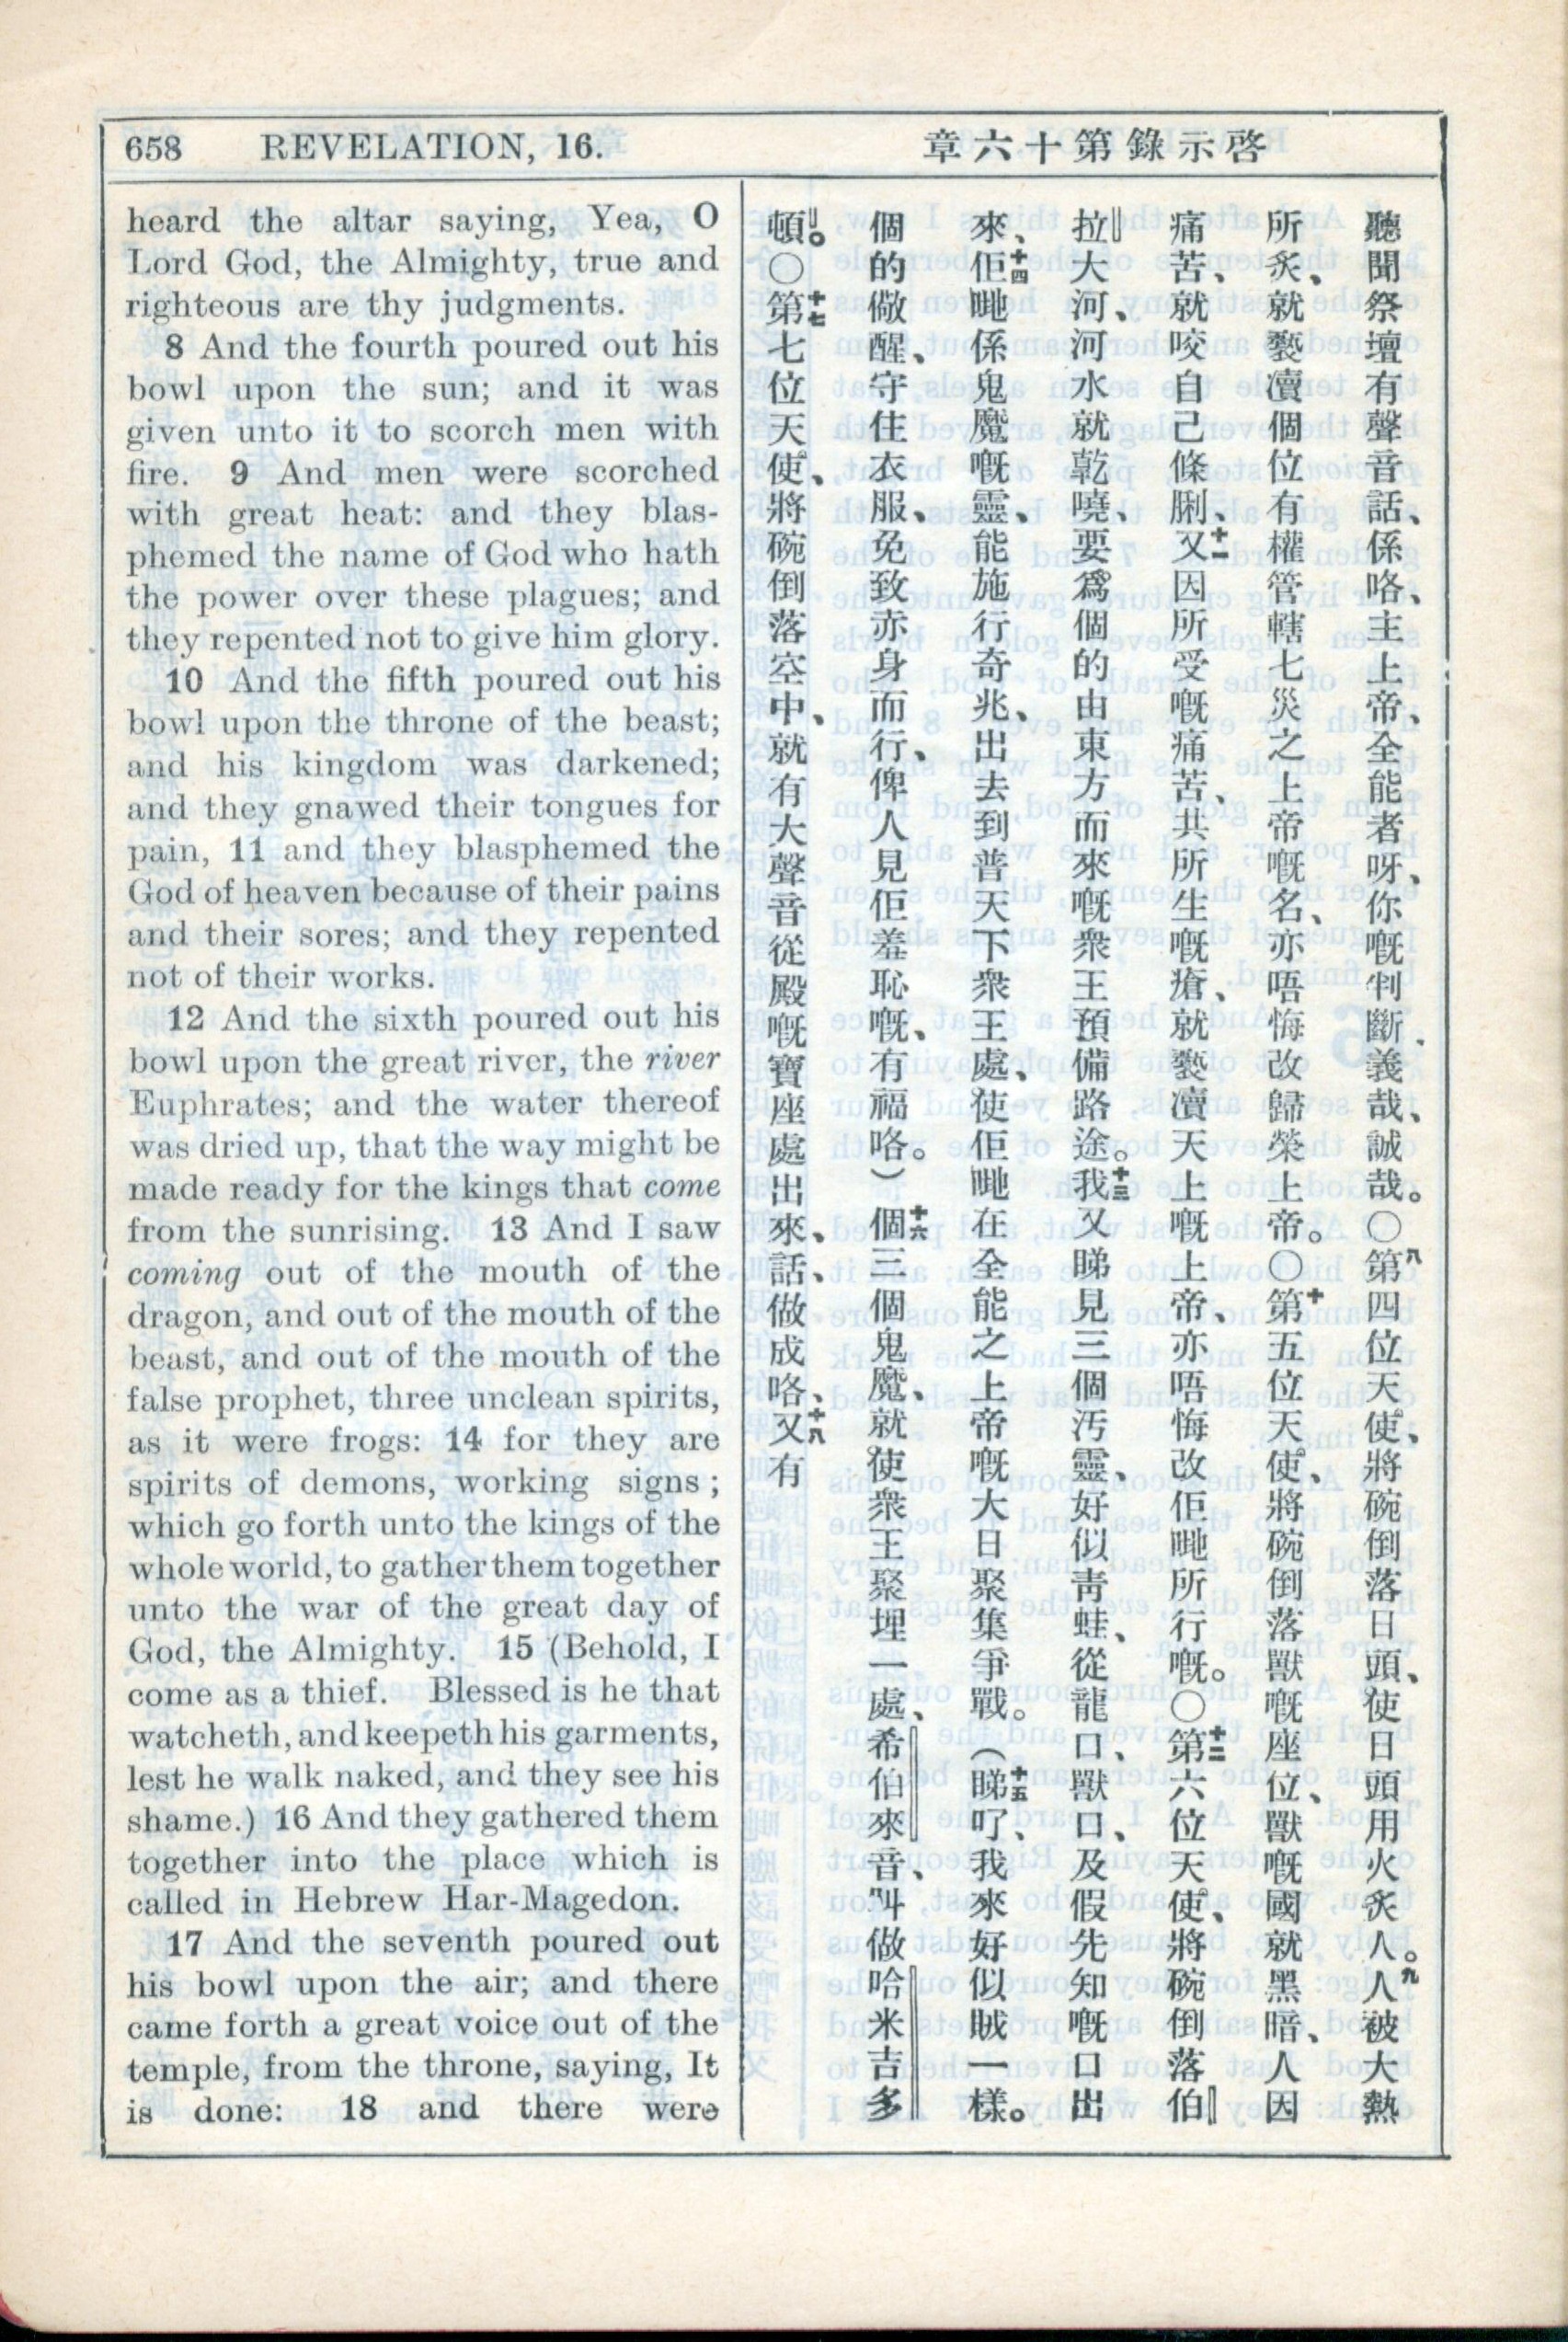 658 REVELATION, 16.
章六十第錄示啓
heard the altar saying, Yea, O
Lord God, the Almighty, true and
righteous are thy judgments.
8 And the fourth poured out his
bowl upon the sun; and it was
given unto it to scorch men with
fire. 9 And men were scorched
with great heat: and they blas-
phemed the name of God who hath
the power over these plagues; and
they repented not to give him glory.
10 And the fifth poured out his
bowl upon the throne of the beast;
and his kingdom was darkened;
and they gnawed their tongues for
pain, 11 and they blasphemed the
God of heaven because of their pains
and their sores; and they repented
not of their works.
12 And the sixth poured out his
bowl upon the great river, the river
Euphrates; and the water thereof
was dried up, that the way might be
made ready for the kings that come
from the sunrising. 13 And I saw
coming out of the mouth of the
dragon, and out of the mouth of the
beast, and out of the mouth of the
false prophet, three unclean spirits,
as it were frogs: 14 for they are
spirits of demons, working signs;
which go forth unto the kings of the
whole world, to gather them together
unto the war of the great day of
God, the Almighty. 15 (Behold, I
come as a thief. Blessed is he that
watcheth, and keepeth his garments,
lest he walk naked, and they see his
shame.) 16 And they gathered them
together into the place which is
called in Hebrew Har-Magedon.
17 And the seventh poured out
his bowl upon the air; and there
came forth a great voice out of the
temple, from the throne, saying, It
is done: 18 and there were
聽聞祭壇有聲音話、係咯、主上帝、全能者呀、你嘅判斷、義哉、誠哉。○八第四位天使、將碗倒落日頭、使日頭用火炙人。九人被大熱
所炙、就褻瀆個位有權管轄七災之上帝嘅名、亦唔悔改歸榮上帝。○十第五位天使、將碗倒落獸嘅座位、獸嘅國就黑暗、人因
痛苦、就咬自己條脷、十一又因所受嘅痛苦、共所生嘅瘡、就褻瀆天上嘅上帝、亦唔悔改佢哋所行嘅。○十二第六位天使、將碗倒落伯
拉大河、河水就乾嘵、要爲個的由東方而來嘅衆王預備路途。十三我又睇見三個汚靈、好似靑蛙、從龍口、獸口、及假先知嘅口出
來、十四佢哋係鬼魔嘅靈、能施行奇兆、出去到普天下衆王處、使佢哋在全能之上帝嘅大日聚集爭戰。（十五睇吖、我來好似賊一樣。
個的儆醒、守住衣服、免致赤身而行、俾人見佢羞恥嘅、有福咯。）十六個三個鬼魔、就使衆王聚埋一處、希伯來音、叫做哈米吉多
頓。○十七第七位天使、將碗倒落空中、就有大聲音從殿嘅寶座處出來、話、做成咯、十八又有